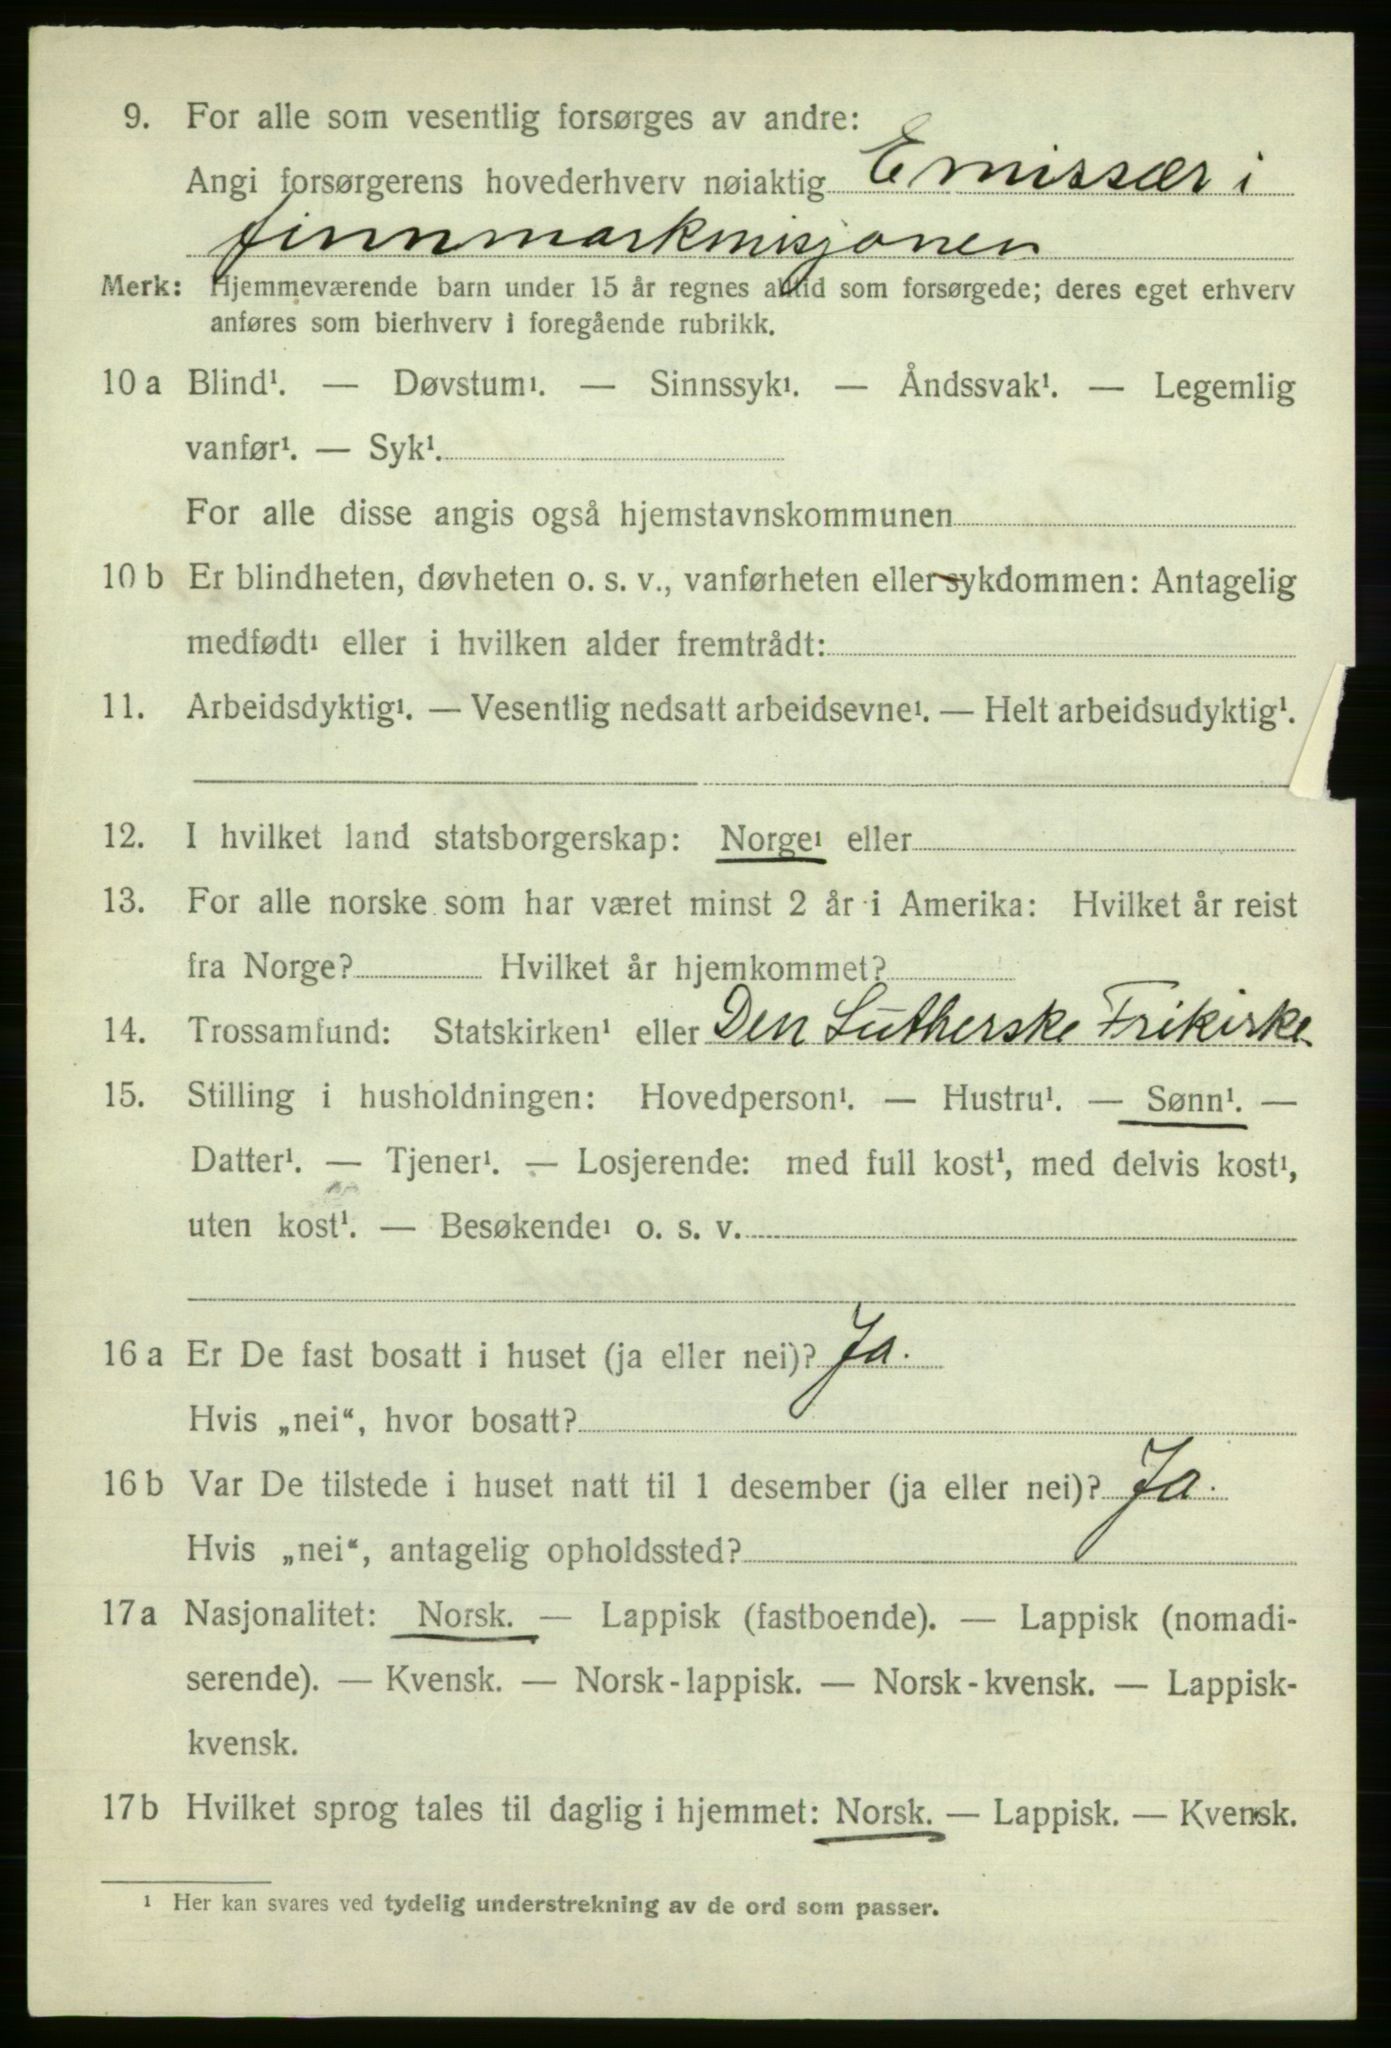 9. For alle som vesentlig forsørges av andre:
Angi forsørgerens hovederhverv nøiaktig Emissær i
finnmarkmisjonen
Merk: Hjemmeværende barn under 15 år regnes alltid som forsørgede; deres eget erhverv
anføres som bierhverv i foregående rubrikk.
10 a Blind¹. — Døvstum¹. — Sinnssyk¹. — Åndssvak¹. — Legemlig
vanfør¹. — Syk¹.
For alle disse angis også hjemstavnskommunen
10 b Er blindheten, døvheten o. s. v., vanførheten eller sykdommen: Antagelig
medfødt¹ eller i hvilken alder fremtrådt:
11. Arbeidsdyktig¹. — Vesentlig nedsatt arbeidsevne¹. — Helt arbeidsudyktig¹.
12. I hvilket land statsborgerskap: Norge¹ eller
13. For alle norske som har været minst 2 år i Amerika: Hvilket år reist
fra Norge? Hvilket år hjemkommet?
14. Trossamfund: Statskirken¹ eller Den Lutherske Frikirke
15. Stilling i husholdningen: Hovedperson¹. — Hustru¹. — Sønn¹. —
Datter¹. — Tjener¹. — Losjerende: med full kost¹, med delvis kost¹,
uten kost¹. — Besøkende¹ o. s. v.
16 a Er De fast bosatt i huset (ja eller nei)? Ja.
Hvis „nei“, hvor bosatt?
16 b Var De tilstede i huset natt til 1 desember (ja eller nei)? Ja.
Hvis „nei“, antagelig opholdssted?
17 a Nasjonalitet: Norsk. — Lappisk (fastboende). — Lappisk (nomadi-
serende). — Kvensk. — Norsk-lappisk. — Norsk-kvensk. — Lappisk-
kvensk.
17 b Hvilket sprog tales til daglig i hjemmet: Norsk. — Lappisk. — Kvensk.
¹ Her kan svares ved tydelig understrekning av de ord som passer.